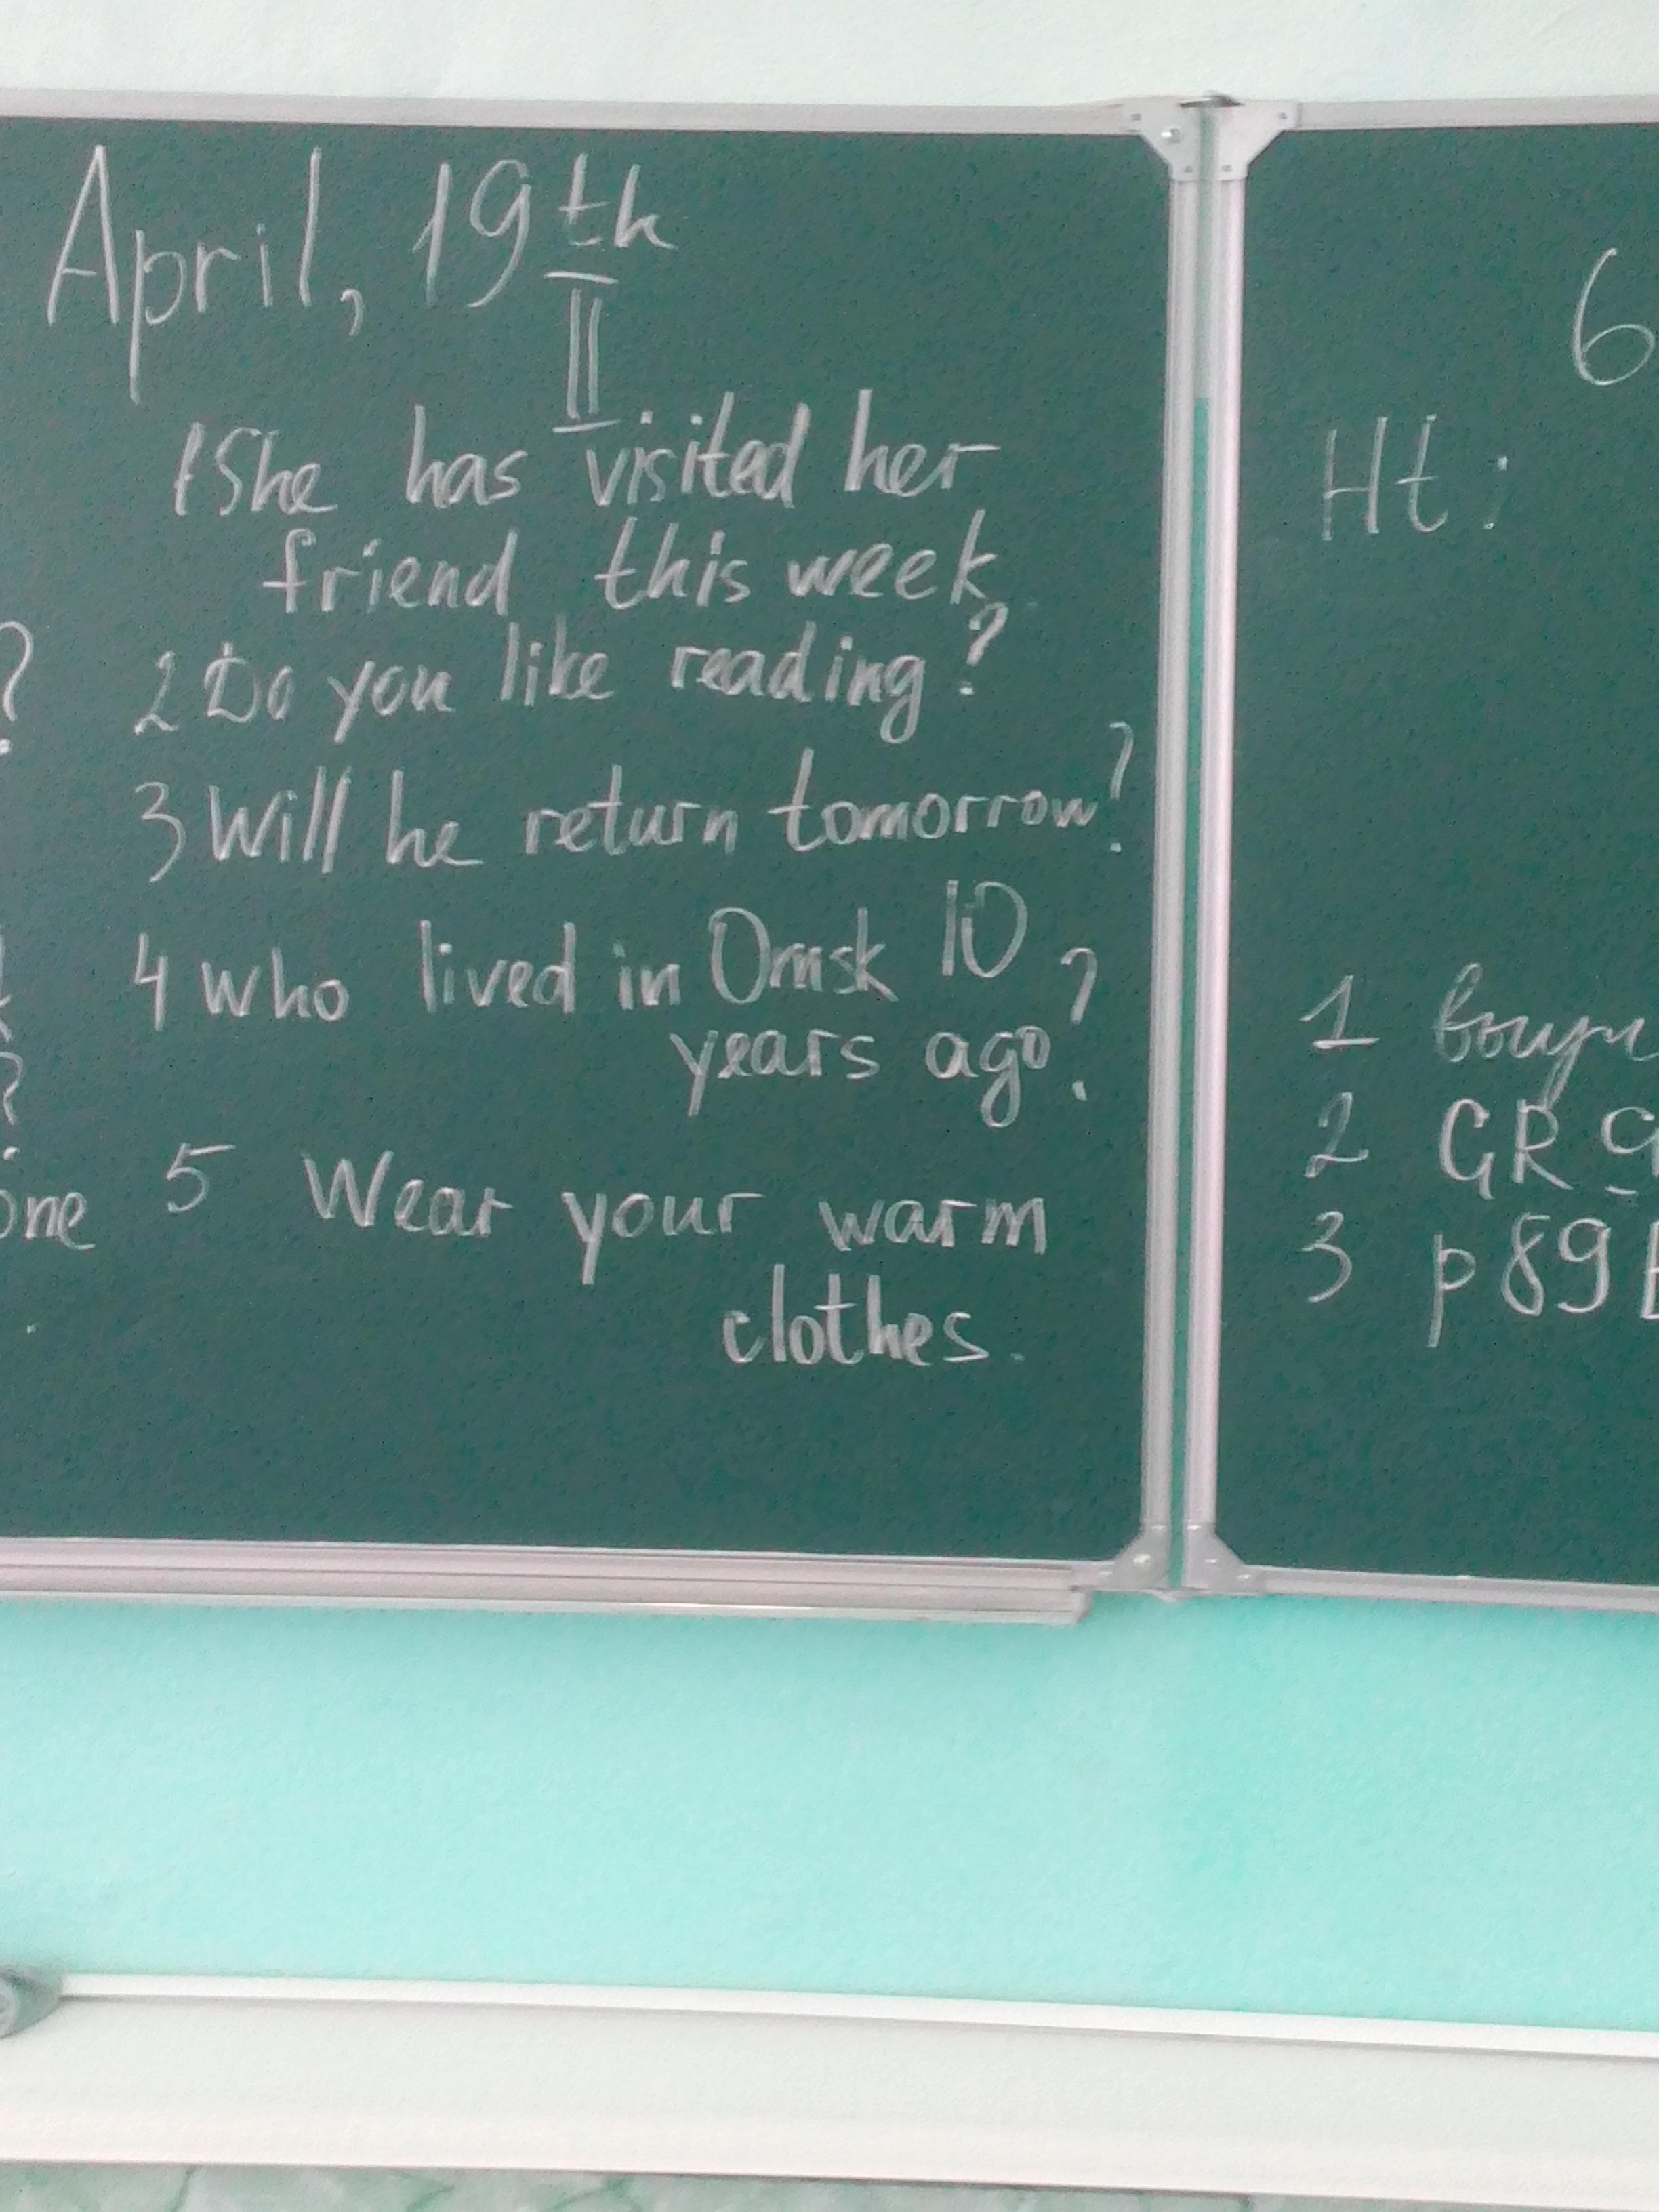 April, 19th
II
1 She has visited her
friend this week
? 2 Do you like reading?
3 Will he return tomorrow?
4 who lived in Omsk 10
years ago?
?
one 5 Wear your warm
clothes.
6
Ht:
1
2 GR 9
3 p 89